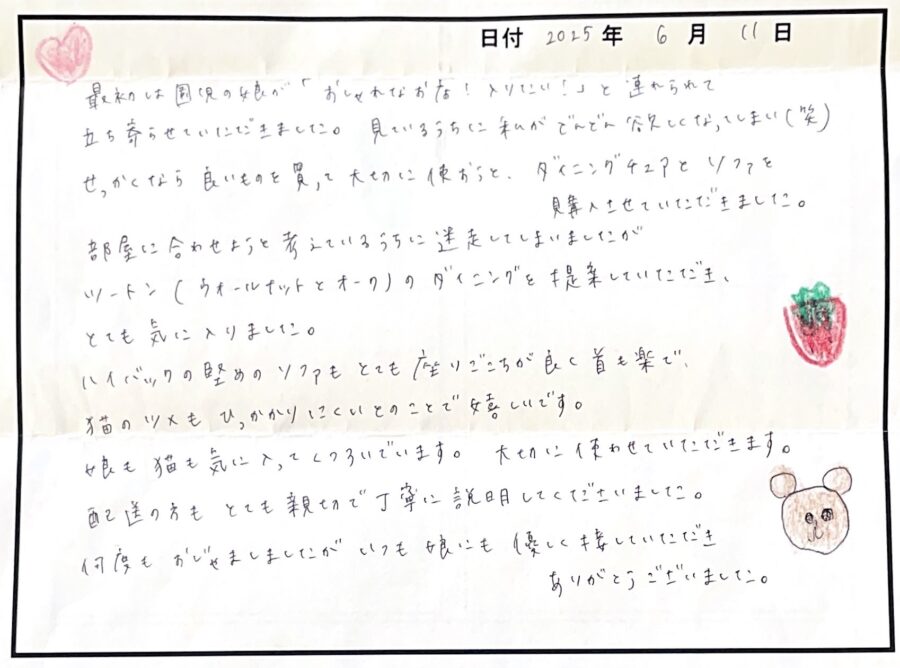 日付 2025年 6月 11日
最初は園児の娘が「おしゃれなお店!入りたい!」と連れられて
立ち寄らせていただきました。見ているうちに私がどんどん欲しくなってしまい(笑)
せっかくなら良いものを買って大切に使おうと、ダイニングチェアとソファを
購入させていただきました。
部屋に合わせようと考えているうちに迷走してしまいましたが
ツートン(ウォールナットとオーク)のダイニングを提案していただき、
とても気に入りました。
ハイバックの堅めのソファもとても座りごこちが良く首も楽で、
猫のツメもひっかかりにくいとのことで嬉しいです。
娘も猫も気に入ってくつろいでいます。大切に使わせていただきます。
配送の方もとても親切で丁寧に説明してくださいました。
何度もおじゃましましたがいつも娘にも優しく接していただき
ありがとうございました。